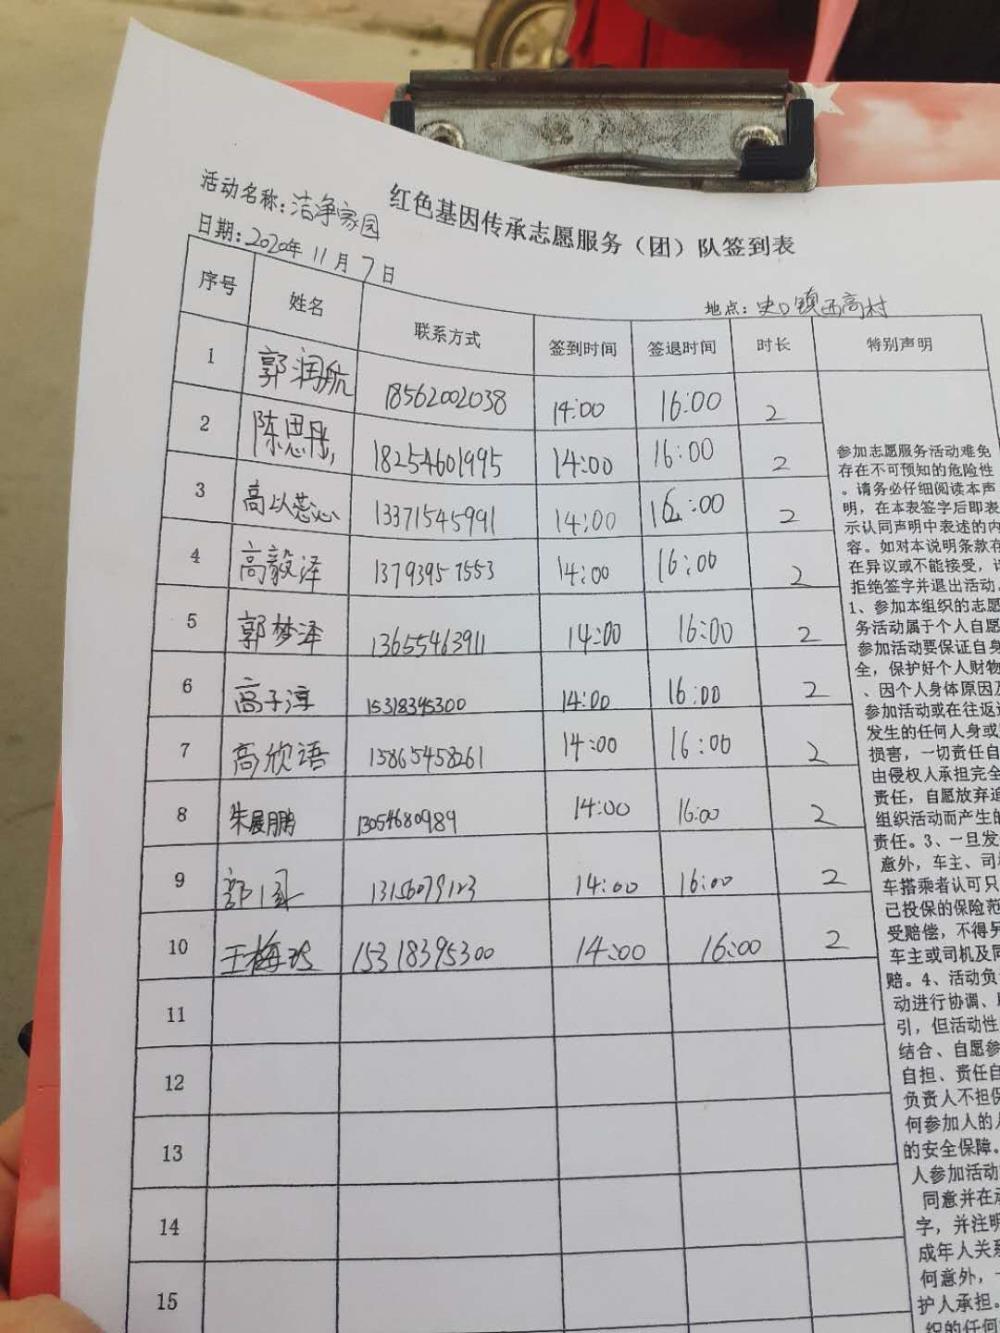 红色基因传承志愿服务（团）队签到表
活动名称：洁净家园
日期：2020年11月7日
地点：史口镇西高村
序号 姓名 联系方式 签到时间 签退时间 时长 特别声明
1 郭润航 18562002038 14:00 16:00 2
2 陈思彤 18254601995 14:00 16:00 2
3 高以蕊 13371545991 14:00 16:00 2
4 高毅泽 13793957553 14:00 16:00 2
5 郭梦泽 13655463911 14:00 16:00 2
6 高子淳 15318395300 14:00 16:00 2
7 高欣语 15865458261 14:00 16:00 2
8 朱晨鹏 13054680989 14:00 16:00 2
9 13156079123 14:00 16:00 2
10 王梅玲 15318395300 14:00 16:00 2
11
12
13
14
15
参加志愿服务活动难免
存在不可预知的危险性
。请务必仔细阅读本声
明，在本表签字后即表
示认同声明中表述的内
容。如对本说明条款存
在异议或不能接受，
拒绝签字并退出活动
1、参加本组织的志愿
务活动属于个人自愿
参加活动要保证自身
全，保护好个人财物
、因个人身体原因及
参加活动或在往返
发生的任何人身或
损害，一切责任自
由侵权人承担完全
责任，自愿放弃追
组织活动而产生的
责任。3、一旦发
意外，车主、司
车搭乘者认可只
已投保的保险范
受赔偿，不得另
车主或司机及同
赔。4、活动负
动进行协调、
引，但活动性
结合、自愿参
自担、责任自
负责人不担保
何参加人的人
的安全保障。
人参加活动
同意并在
字，并注明
成年人关系
何意外，
护人承担。
织的任何